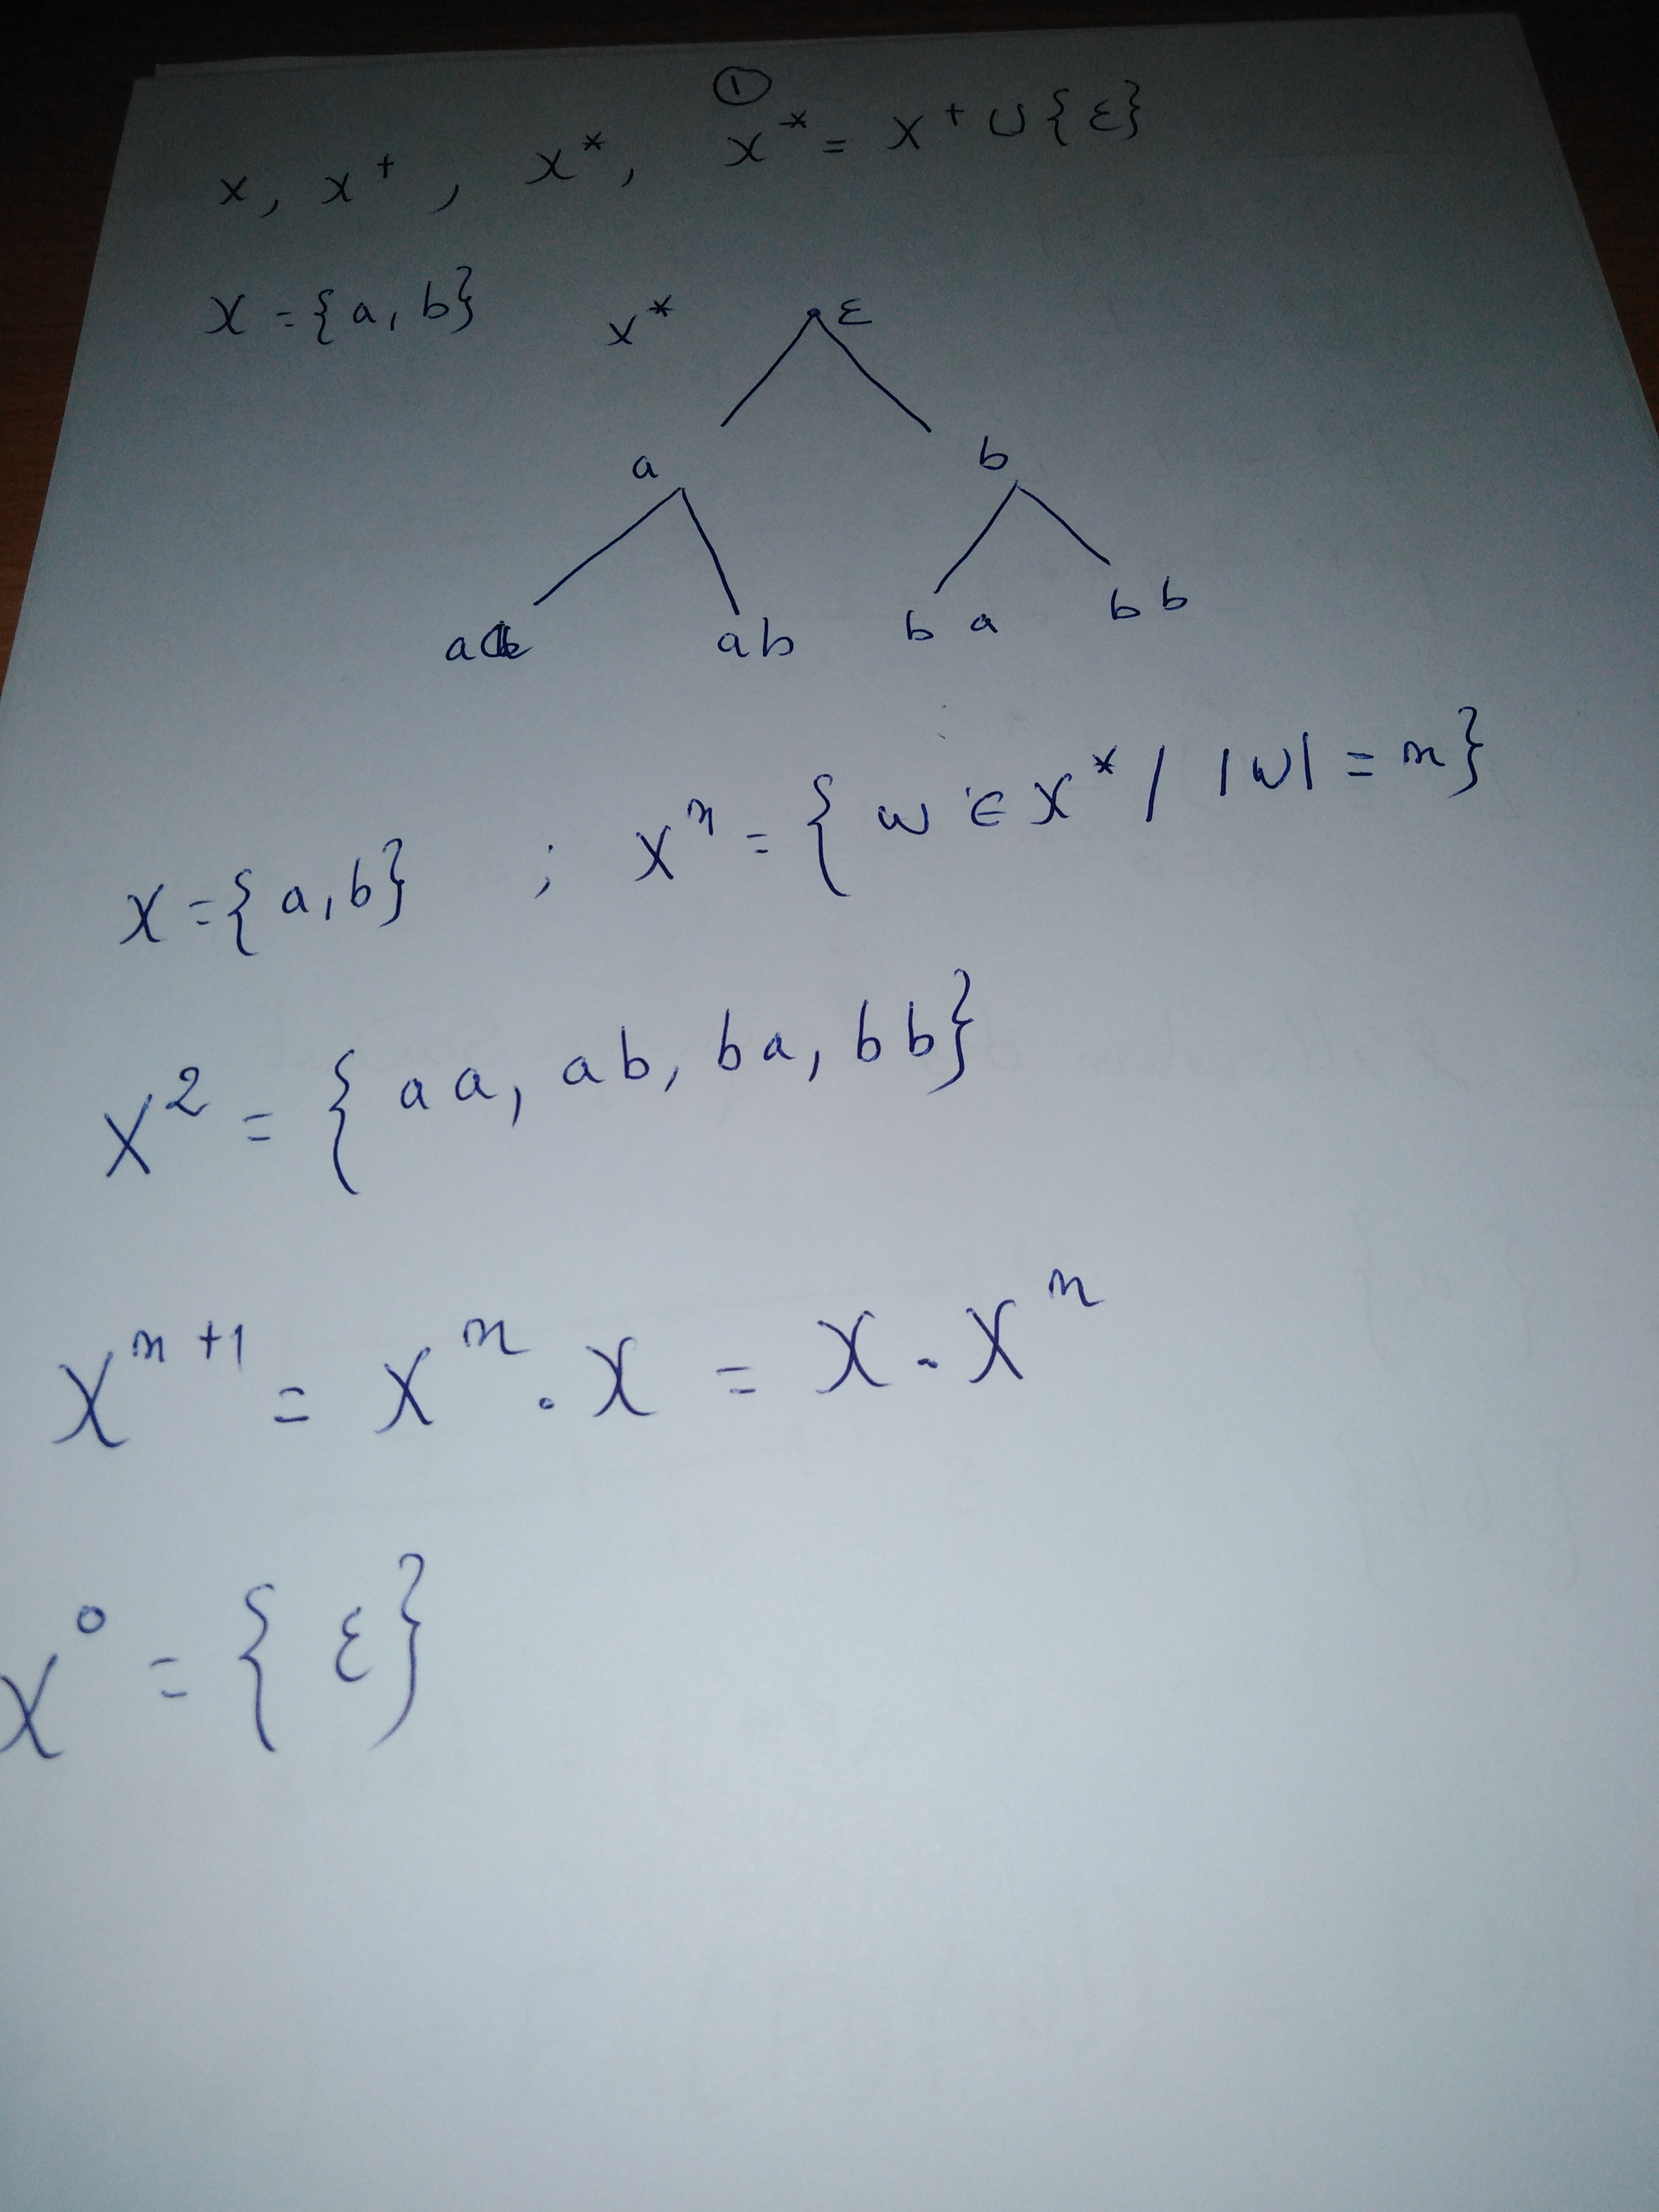 ①
X, X⁺, X*, X* = X⁺ ∪ {ε}
X = {a, b} X* ε
a b
ab ba bb
X = {a, b} ; Xⁿ = {w ∈ X* / |w| = n}
X² = {aa, ab, ba, bb}
Xⁿ⁺¹ = Xⁿ . X = X . Xⁿ
X⁰ = {ε}